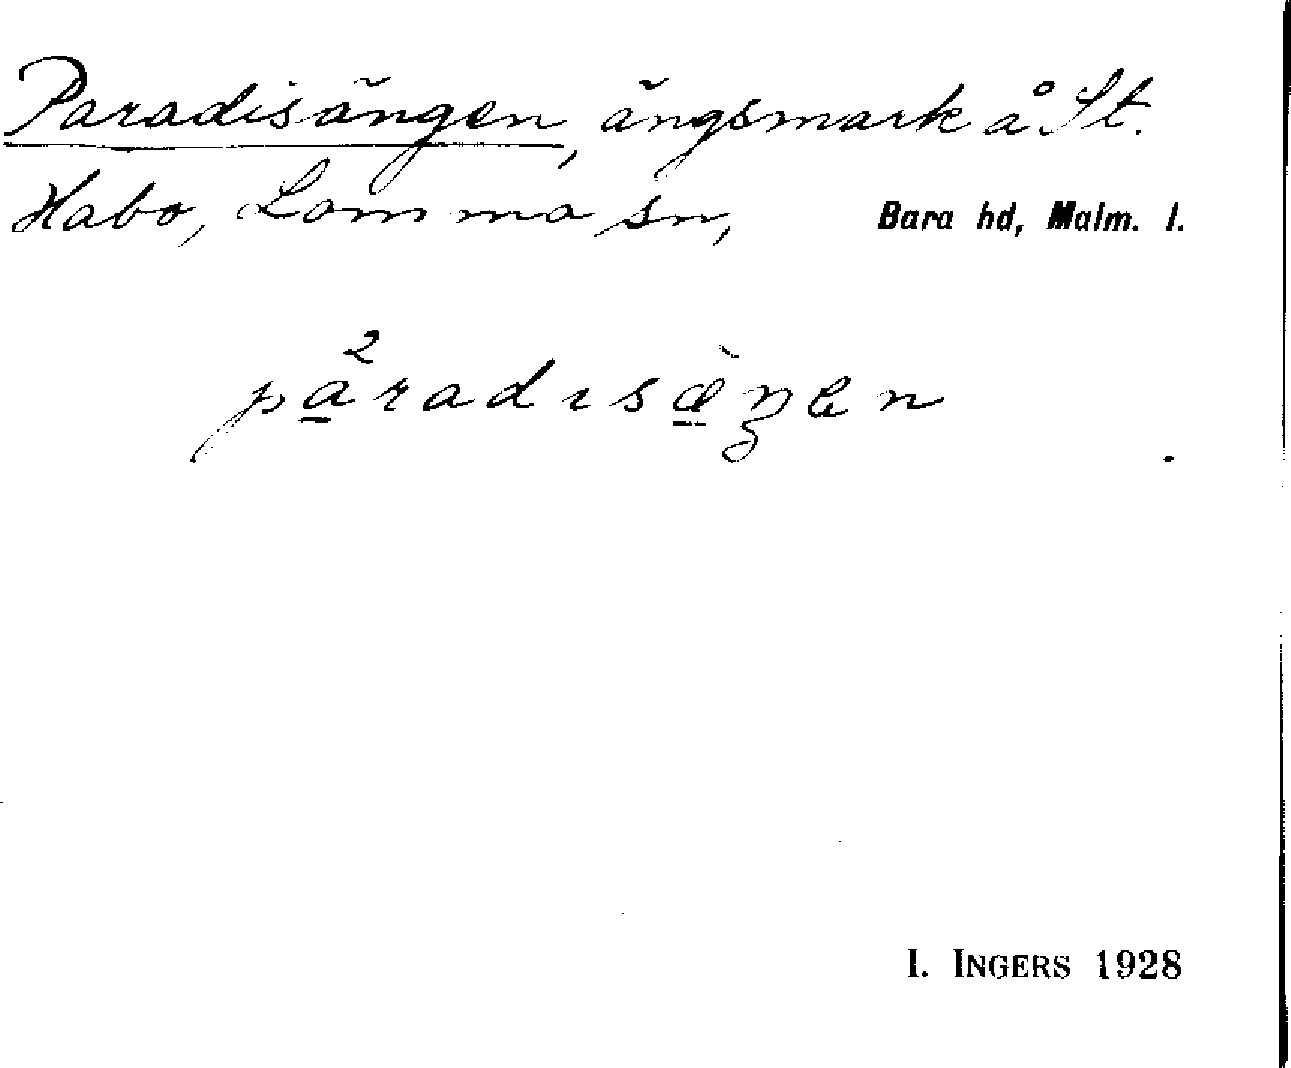 Paradisängen, ängsmark å St.
Habo, Lomma sn, Bara hd, Malm. l.
pa̲²radɩsæ̲̀ŋen
I. INGERS 1928